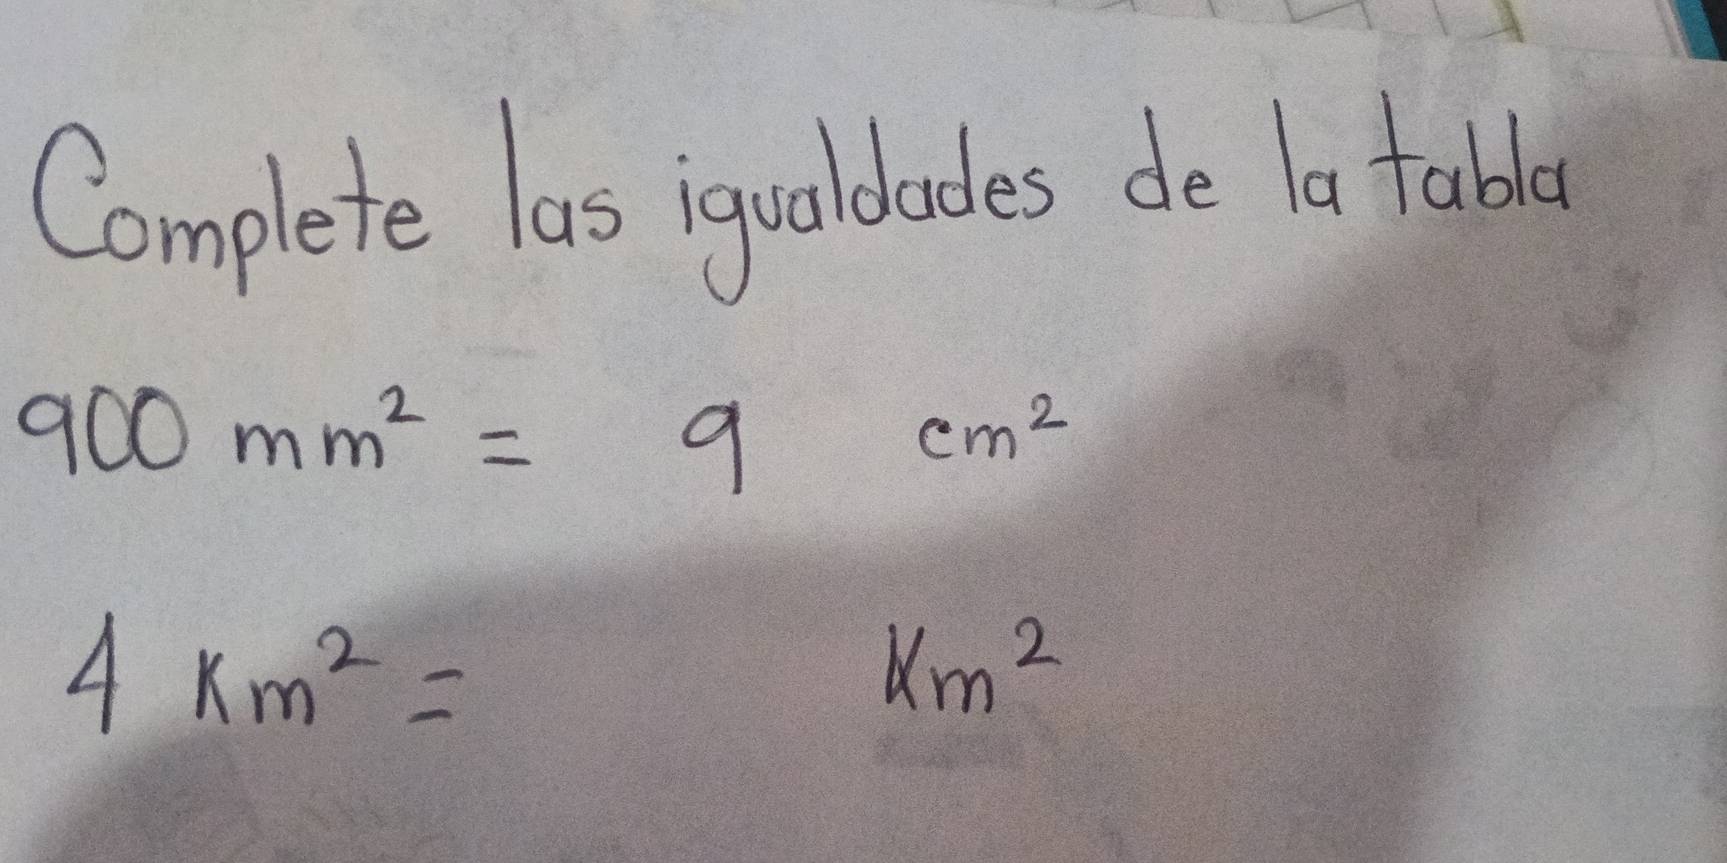 Complete las igualdades de la tabla
900 mm² = 9 cm²
4 Km² = Km²